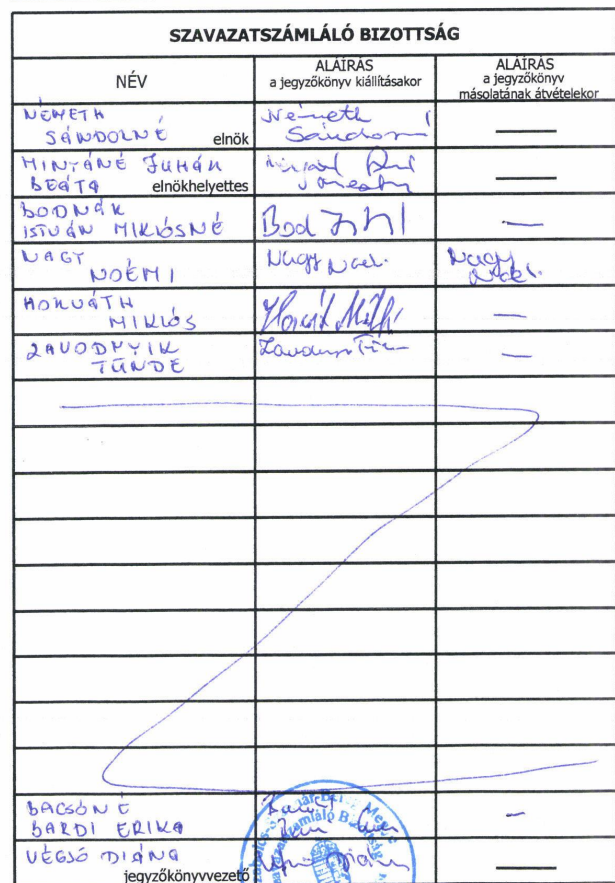 SZAVAZATSZÁMLÁLÓ BIZOTTSÁG
NÉV
ALÁÍRÁS
a jegyzőkönyv kiállításakor
ALÁÍRÁS
a jegyzőkönyv
másolatának átvételekor
NÉMETH
SÁNDORNÉ elnök
Németh
Sándorné
—
MINYÁNÉ JUHÁR
BEÁTA elnökhelyettes
—
BODNÁR
ISTVÁN MIKLÓSNÉ
Bod
—
NAGY
NOÉMI
Nagy Noémi
Nagy
Noémi
HORVÁTH
MIKLÓS
Horváth Miklós
—
ZAVODNYIK
TÜNDE
—
BACSÓNÉ
BARDI ERIKA
—
VÉGSŐ DIÁNA
jegyzőkönyvvezető
Diána
—